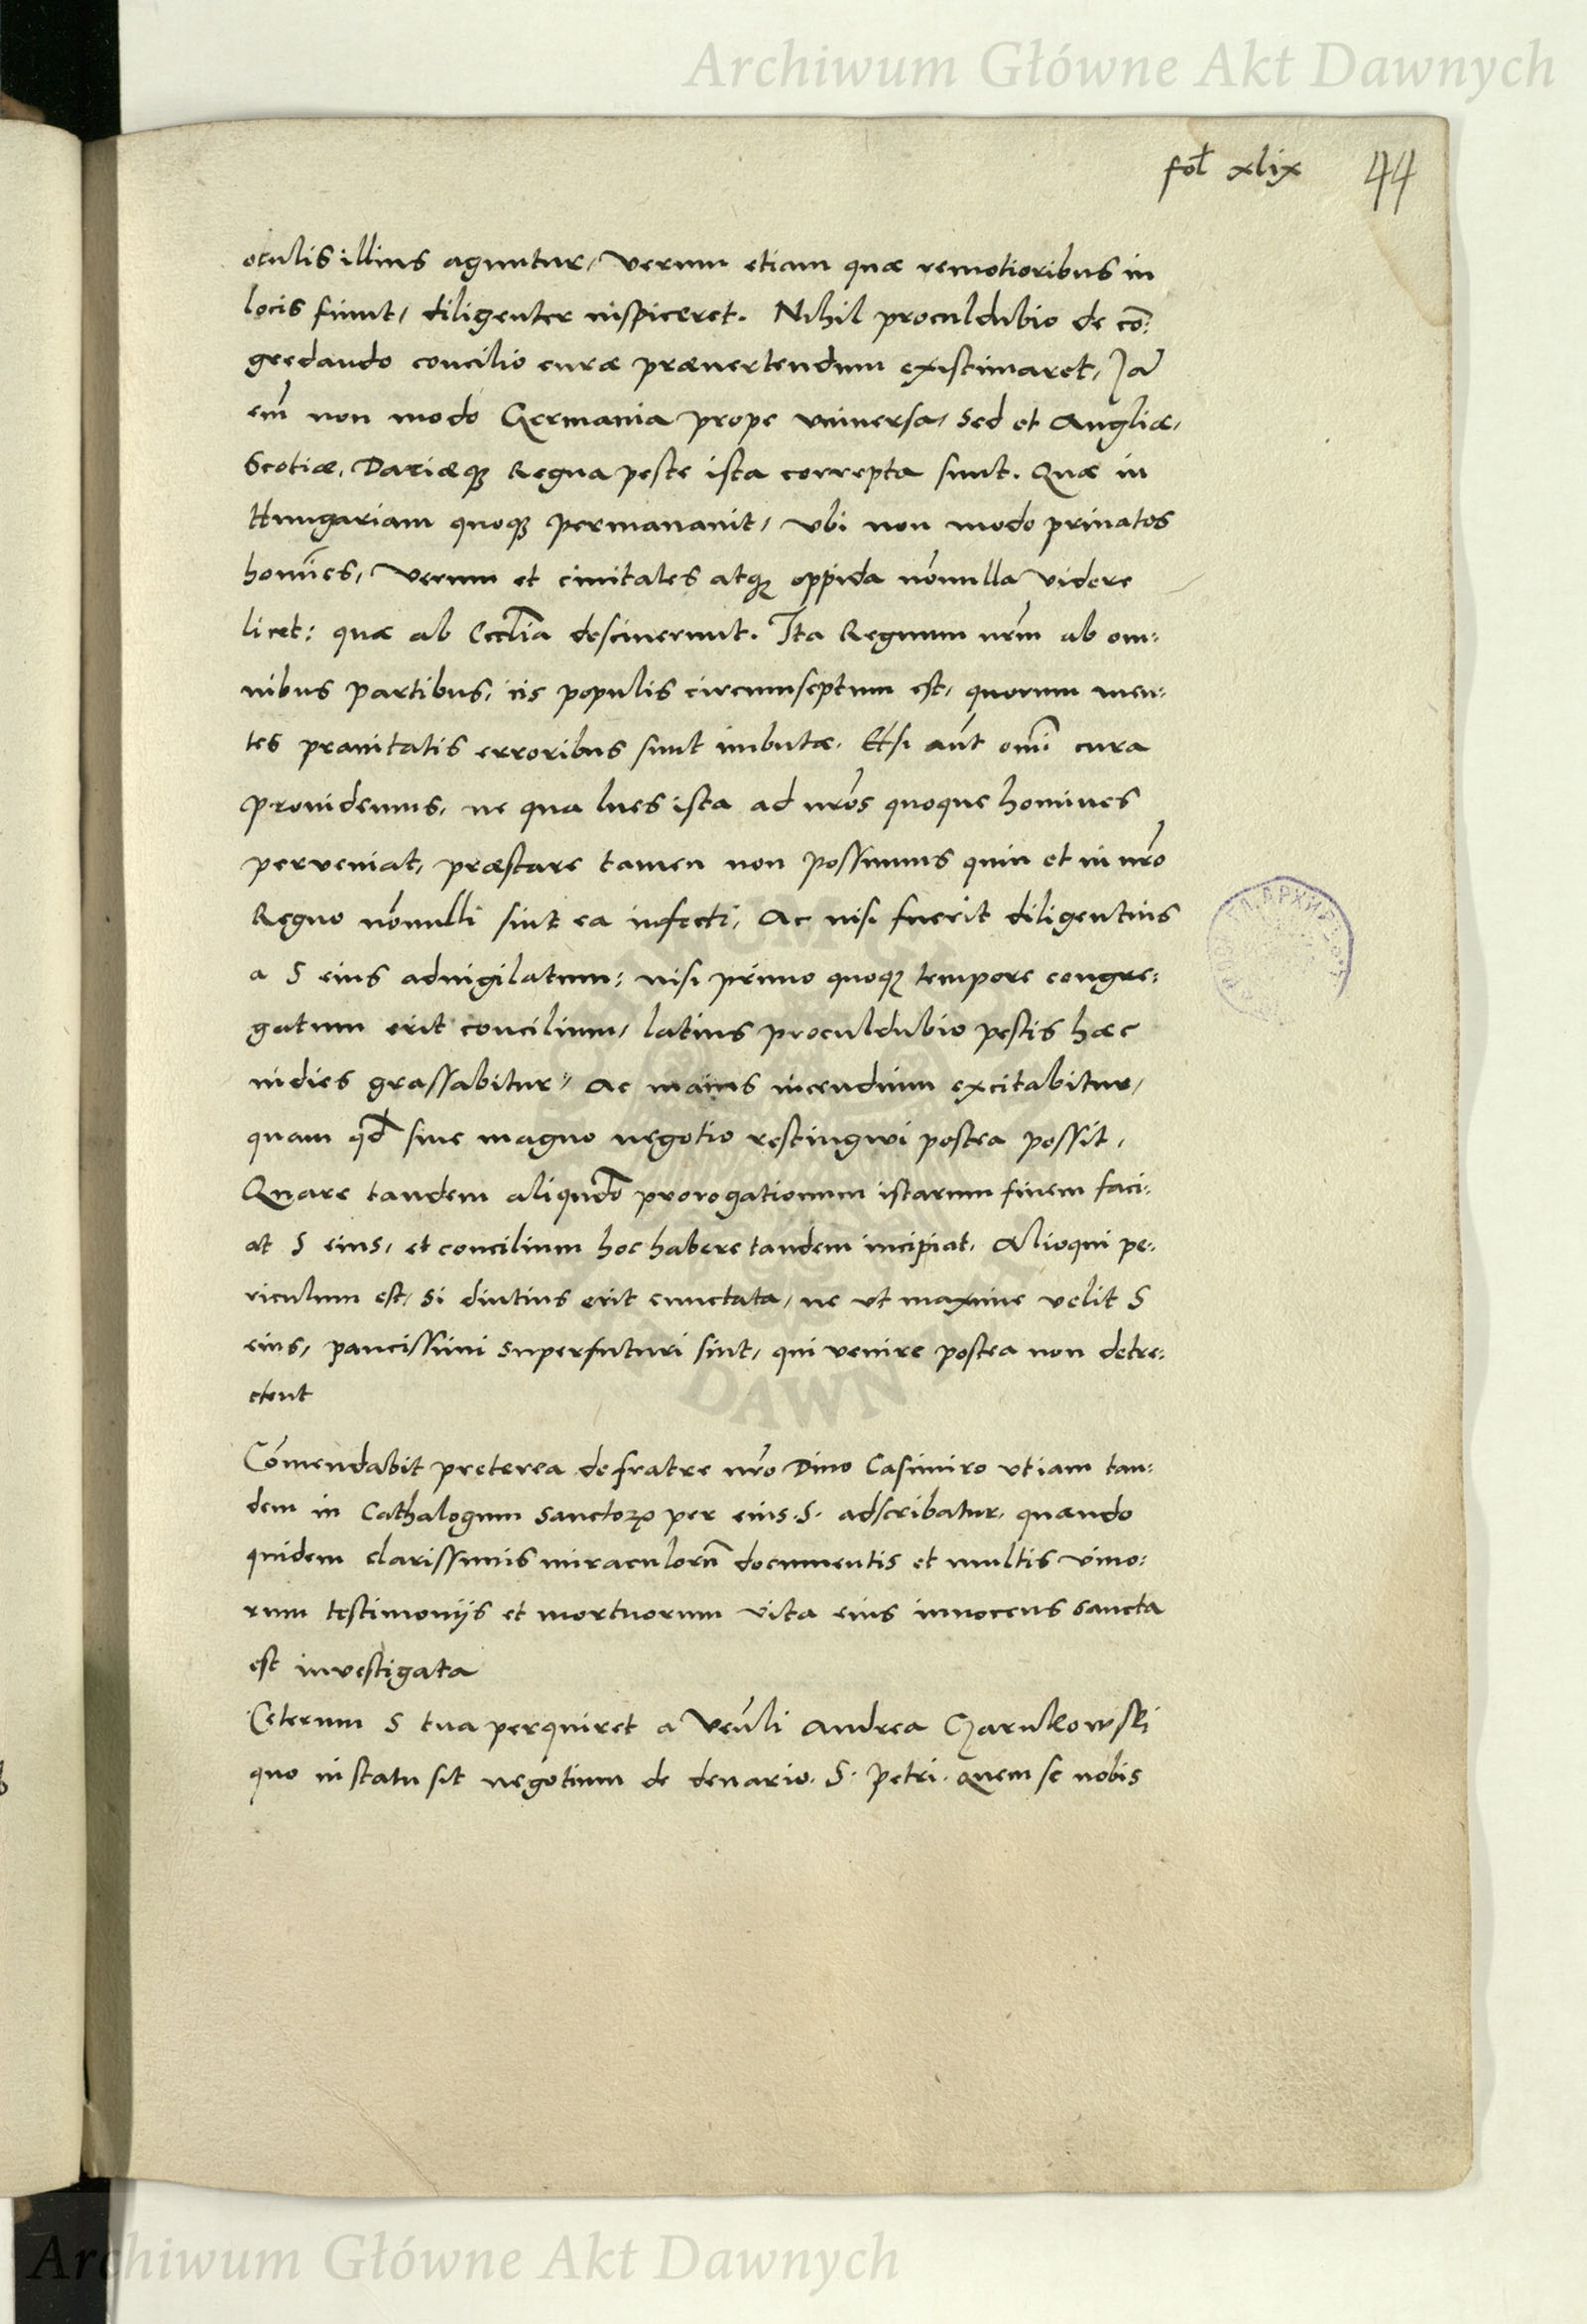 Archiwum Główne Akt Dawnych
fol xlix 44
oculis illius aguntur, verum etiam quæ remotioribus in
locis fiunt, diligenter inspiceret. Nihil proculdubio de co͞:
gredando concilio curæ prævertendum existimaret, Ja͞
em͞ non modo Germania prope vniversa, sed et Angliæ,
Scotiæ, Daciæq; Regna peste ista correpta sunt. Quæ in
Hungariam quoq; permanauit, vbi non modo priuatos
homi͞es, verum et ciuitates atq; oppida no͞nulla videre
licet: quæ ab Eccl͞ia desciuerunt. Ita Regnum nr͞m ab om:
nibus partibus, iis populis circumseptum est, quorum men:
tes prauitatis erroribus sunt imbutæ. Etsi au͞t omi͞ cura
prouidemus, ne qua lues ista ad nr͞os quoque homines
perveniat, præstare tamen non possumus quin et in nr͞o
Regno no͞nulli sint ea infecti, Ac nisi fuerit diligentius
a S eius aduigilatum: nisi primo quoq; tempore congre:
gatum erit concilium, latius proculdubio pestis hæc
indies grassabitur, Ac maius incendium excitabitur,
quam qd͞ sine magno negotio restingwi postea possit,
Quare tandem aliqua͞do prorogationum istarum finem faci:
at S eius, et concilium hoc habere tandem incipiat. Alioqui pe:
riculum est, si diutius erit cunctata, ne vt maxime velit S
eius, paucissimi superfuturi sint, qui venire postea non detre:
ctent
Co͞mendabit preterea de fratre nr͞o Dino Casimiro vt iam tan:
dem in Cathalogum Sanctoꝝ per eius .S. adscribatur, quando
quidem clarissimis miraculoru͞ documentis et multis viuo:
rum testimonijs et mortuorum vita eius innocens sancta
est investigata
Ceterum S tua perquiret a Ven͞li Andrea Czarnkowski
quo in statu sit negotium de denario .S. Petri. quem se nobis
Archiwum Główne Akt Dawnych